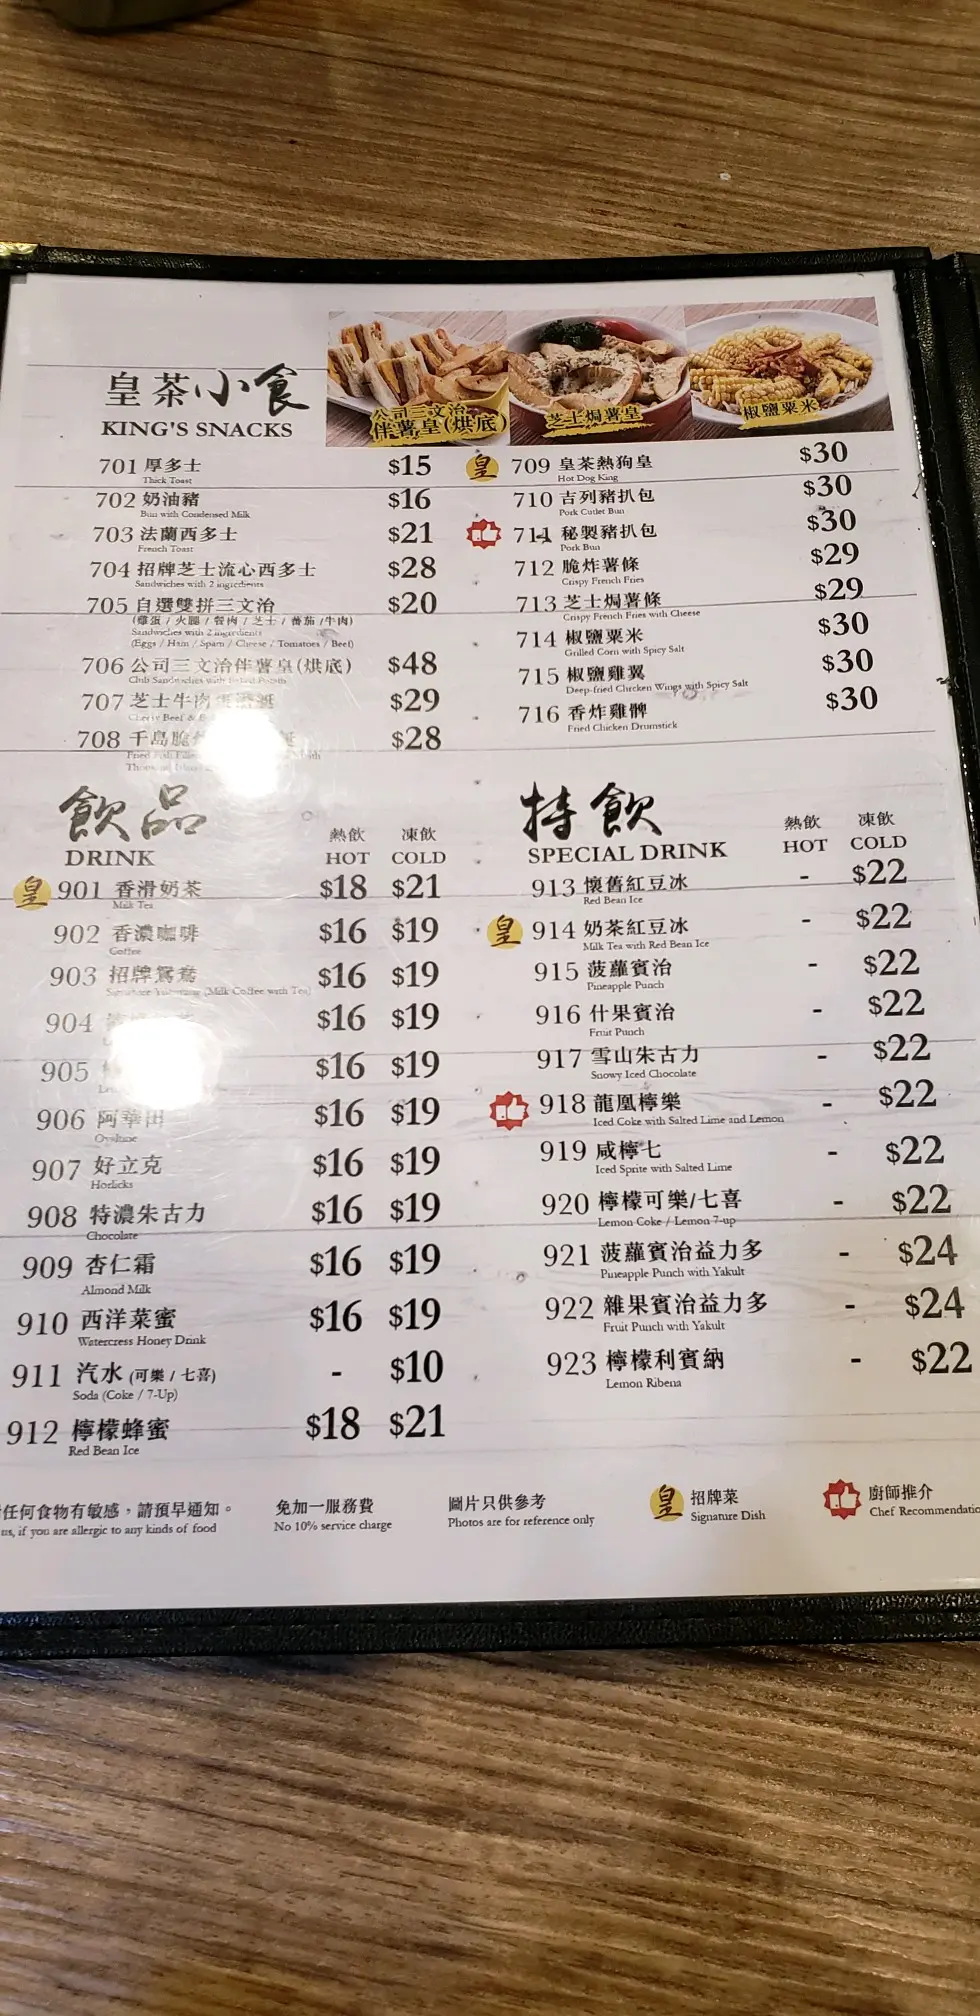 皇茶小食
KING'S SNACKS
公司三文治
伴薯皇(烘底)
芝士焗薯皇
椒鹽粟米
701 厚多士 $15
Thick Toast
702 奶油豬 $16
Bun with Condensed Milk
703 法蘭西多士 $21
French Toast
704 招牌芝士流心西多士 $28
Sandwiches with 2 ingredients
705 自選雙拼三文治 $20
(雞蛋 / 火腿 / 餐肉 / 芝士 / 蕃茄 / 牛肉)
Sandwiches with 2 ingredients
(Eggs / Ham / Spam / Cheese / Tomatoes / Beef)
706 公司三文治伴薯皇(烘底) $48
Club Sandwiches with
707 芝士牛肉 $29
Beef &
708 千島脆 $28
皇 709 皇茶熱狗皇 $30
Hot Dog King
710 吉列豬扒包 $30
Pork Cutlet Bun
711 秘製豬扒包 $30
Pork Bun
712 脆炸薯條 $29
Crispy French Fries
713 芝士焗薯條 $29
Crispy French Fries with Cheese
714 椒鹽粟米 $30
Grilled Corn with Spicy Salt
715 椒鹽雞翼 $30
Deep-fried Chicken Wings with Spicy Salt
716 香炸雞髀 $30
Fried Chicken Drumstick
飲品 熱飲 凍飲
DRINK HOT COLD
皇 901 香滑奶茶 $18 $21
Milk Tea
902 香濃咖啡 $16 $19
Coffee
903 招牌鴛鴦 $16 $19
(Milk Coffee with Tea)
904 $16 $19
905 $16 $19
906 阿華田 $16 $19
Ovaltine
907 好立克 $16 $19
Horlicks
908 特濃朱古力 $16 $19
Chocolate
909 杏仁霜 $16 $19
Almond Milk
910 西洋菜蜜 $16 $19
Watercress Honey Drink
911 汽水 (可樂 / 七喜) - $10
Soda (Coke / 7-Up)
912 檸檬蜂蜜 $18 $21
Red Bean Ice
特飲 熱飲 凍飲
SPECIAL DRINK HOT COLD
913 懷舊紅豆冰 - $22
Red Bean Ice
皇 914 奶茶紅豆冰 - $22
Milk Tea with Red Bean Ice
915 菠蘿賓治 - $22
Pineapple Punch
916 什果賓治 - $22
Fruit Punch
917 雪山朱古力 - $22
Snowy Iced Chocolate
918 龍凰檸樂 - $22
Iced Coke with Salted Lime and Lemon
919 咸檸七 - $22
Iced Sprite with Salted Lime
920 檸檬可樂/七喜 - $22
Lemon Coke / Lemon 7-up
921 菠蘿賓治益力多 - $24
Pineapple Punch with Yakult
922 雜果賓治益力多 - $24
Fruit Punch with Yakult
923 檸檬利賓納 - $22
Lemon Ribena
任何食物有敏感，請預早通知。
us, if you are allergic to any kinds of food
免加一服務費
No 10% service charge
圖片只供參考
Photos are for reference only
皇 招牌菜
Signature Dish
廚師推介
Chef Recommendatio